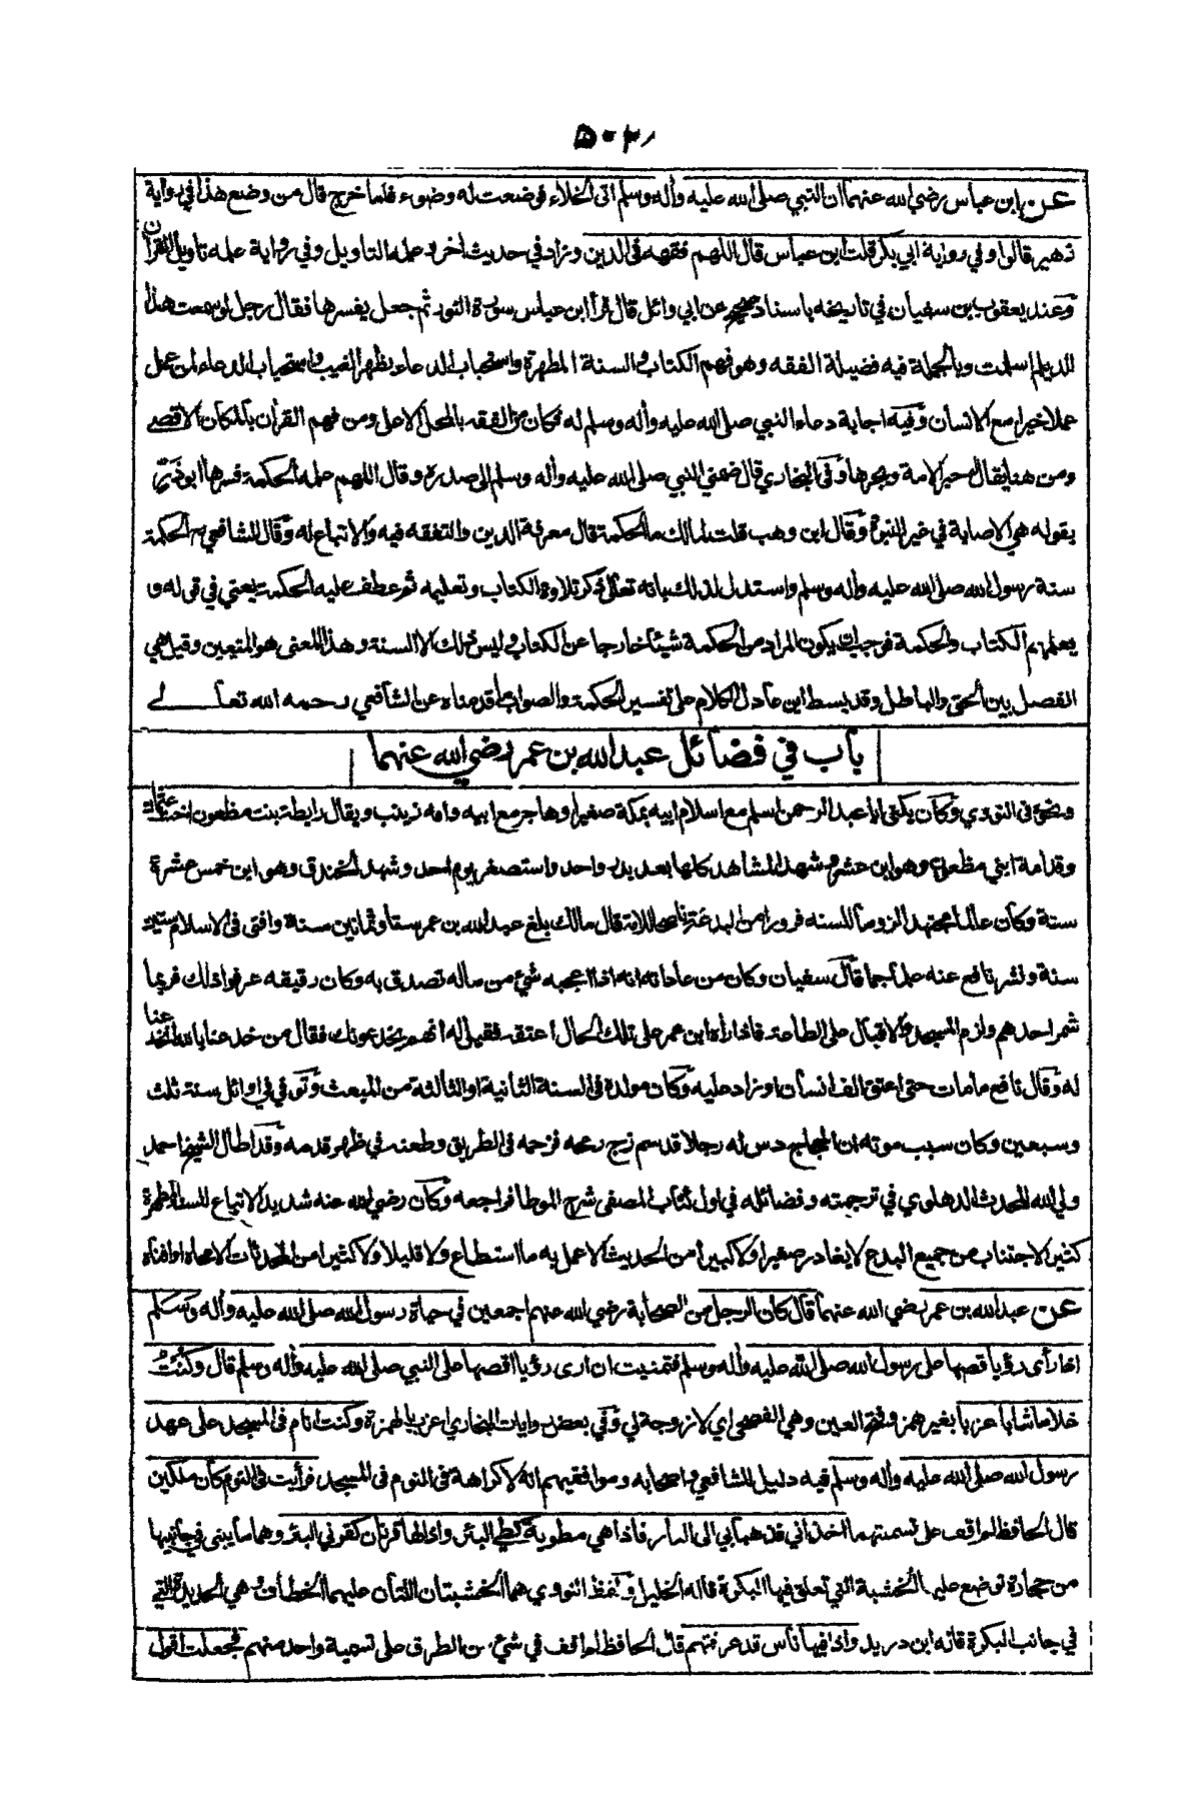 ٥٠٣
عن ابن عباس رضي الله عنهما ان النبي صلى الله عليه وأله وسلم اتى الخلاء فوضعت له وضوء فلما خرج قال من وضع هذا في رواية
زهير قالوا وفي رواية ابي بكر قلت ابن عباس قال اللهم فقهه في الدين وزاد في حديث أخر وعلمه التاويل وفي رواية علمه تاويل القرأن
وعند يعقوب بن سفيان في تاريخه باسناد صحيح عن ابي وائل قال قرأ ابن عباس سورة النور ثم جعل يفسرها فقال رجل لو سمعت هذا
الديلم اسلمت وبالجملة فيه فضيلة الفقه وهو فهم الكتاب والسنة المطهرة واستحباب الدعاء بظهر الغيب واستحباب الدعاء لمن عمل
عملا خيرا مع الانسان وفيه اجابة دعاء النبي صلى الله عليه وأله وسلم له فكان من الفقه بالمحل الاعلى ومن فهم القرأن بالمكان الاقصى
ومن هنا يقال حبر الامة وبحرها وفي البخاري قال ضمني النبي صلى الله عليه وأله وسلم الى صدره وقال اللهم علمه الحكمة فسرها ابوذر
بقوله هي الاصابة في غير النبوة وقال ابن وهب قلت لمالك ما الحكمة قال معرفة الدين والتفقه فيه والاتباع له وقال الشافعي رح الحكمة
سنة رسول الله صلى الله عليه وأله وسلم واستدل لذلك بانه تعالى ذكر تلاوة الكتاب وتعليمه ثم عطف عليه الحكمة يعني في قوله و
يعلمهم الكتاب والحكمة فوجب ان يكون المراد من الحكمة شيئا خارجا عن الكتاب وليس ذلك الا السنة وهذا المعنى هو المتعين وقيل هي
الفصل بين الحق والباطل وقد بسط ابن عادل الكلام على تفسير الحكمة والصواب ما قدمناه عن الشافعي رحمه الله تعالى
باب في فضائل عبدالله بن عمر رضي الله عنهما
ونحوه في النووي وكان يكنى ابا عبد الرحمن اسلم مع اسلام ابيه بمكة صغيرا وهاجر مع ابيه وامه زينب ويقال رابطة بنت مظعون اخت عثمان
وقدامة ابني مظعون وهو ابن عشر وشهد المشاهد كلها بعد بدر واحد واستصغر يوم احد وشهد الخندق وهو ابن خمس عشرة
سنة وكان عالما مجتهدا لزوما للسنه فرورا من البدعة ناصحا للامة قال مالك بلغ عبد الله بن عمر ستا وثمانين سنة وافتى في الاسلام ستين
سنة ونشر نافع عنه علما جما قال سفيان وكان من عاداته انه اذا اعجبه شيء من ماله تصدق به وكان رقيقه عرفوا ذلك فربما
شمر احدهم ولزم المسجد والاقبال على الطاعة فاذا رأه ابن عمر على تلك الحال اعتقه فقيل له انهم يخدعونك فقال من خدعنا بالله انخدعنا
له وقال نافع ما مات حتى اعتق الف انسان او زاد عليه وكان مولده في السنة الثانية او الثالثة من المبعث وتوفي في اوائل سنة ثلث
وسبعين وكان سبب موته ان الحجاج دس له رجلا قد سم زج رمحه فزحمه في الطريق وطعنه في ظهر قدمه وقد اطال الشيخ احمد
ولي الله المحدث الدهلوي في ترجمته وفضائله في اول كتاب المصفى شرح الموطا فراجعه وكان رضي الله عنه شديد الاتباع للسنة المطهرة
كثير الاجتناب من جميع البدع لا يغادر صغيرا ولا كبيرا من الحديث الا عمل به ما استطاع ولا قليلا ولا كثيرا من المحدثات الا محاه او افناه
عن عبد الله بن عمر رضي الله عنهما قال كان الرجل من الصحابة رضي الله عنهم اجمعين في حياة رسول الله صلى الله عليه وأله وسلم
اذا رأى رؤيا قصها على رسول الله صلى الله عليه وأله وسلم فتمنيت ان ارى رؤيا اقصها على النبي صلى الله عليه وأله وسلم قال وكنت
غلاما شابا عزبا بغير همز وفتح العين وهي الفصحى اي لا زوجة لي وفي بعض روايات البخاري اعزب بالهمزة وكنت انام في المسجد على عهد
رسول الله صلى الله عليه وأله وسلم فيه دليل للشافعي واصحابه وموافقيهم انه لا كراهة في النوم في المسجد فرأيت في النوم كأن ملكين
قال الحافظ لم اقف على تسميتهما اخذاني فذهبا بي الى النار فاذا هي مطوية كطي البئر واذا لها قرنان كقرني البئر وهما ما يبنى في جانبيها
من حجارة توضع عليها الخشبة التي تعلق فيها البكرة قاله الخليل ولفظ النووي هما الخشبتان اللتان عليهما الخطاف وهي الحديدة التي
في جانب البكرة قاله ابن دريد واذا فيها ناس قد عرفتهم قال الحافظ لم اقف في شيء من الطرق على تسمية واحد منهم فجعلت اقول